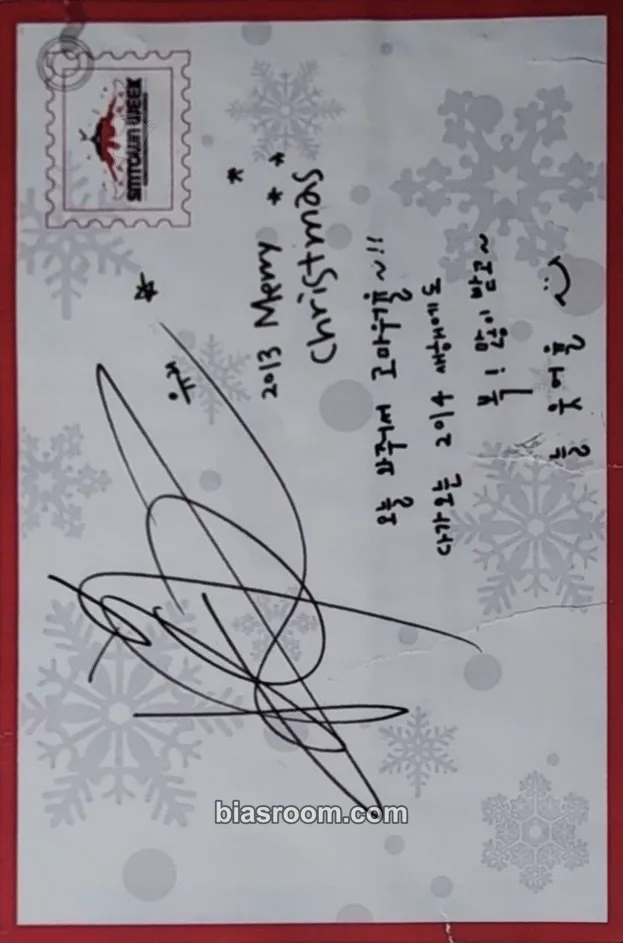 SMTOWN WEEK
2013 Merry
Christmas
오늘 와줘서 ~!!
다가오는 2014 새해에도
복! 많이 받고~
늘
biasroom.com